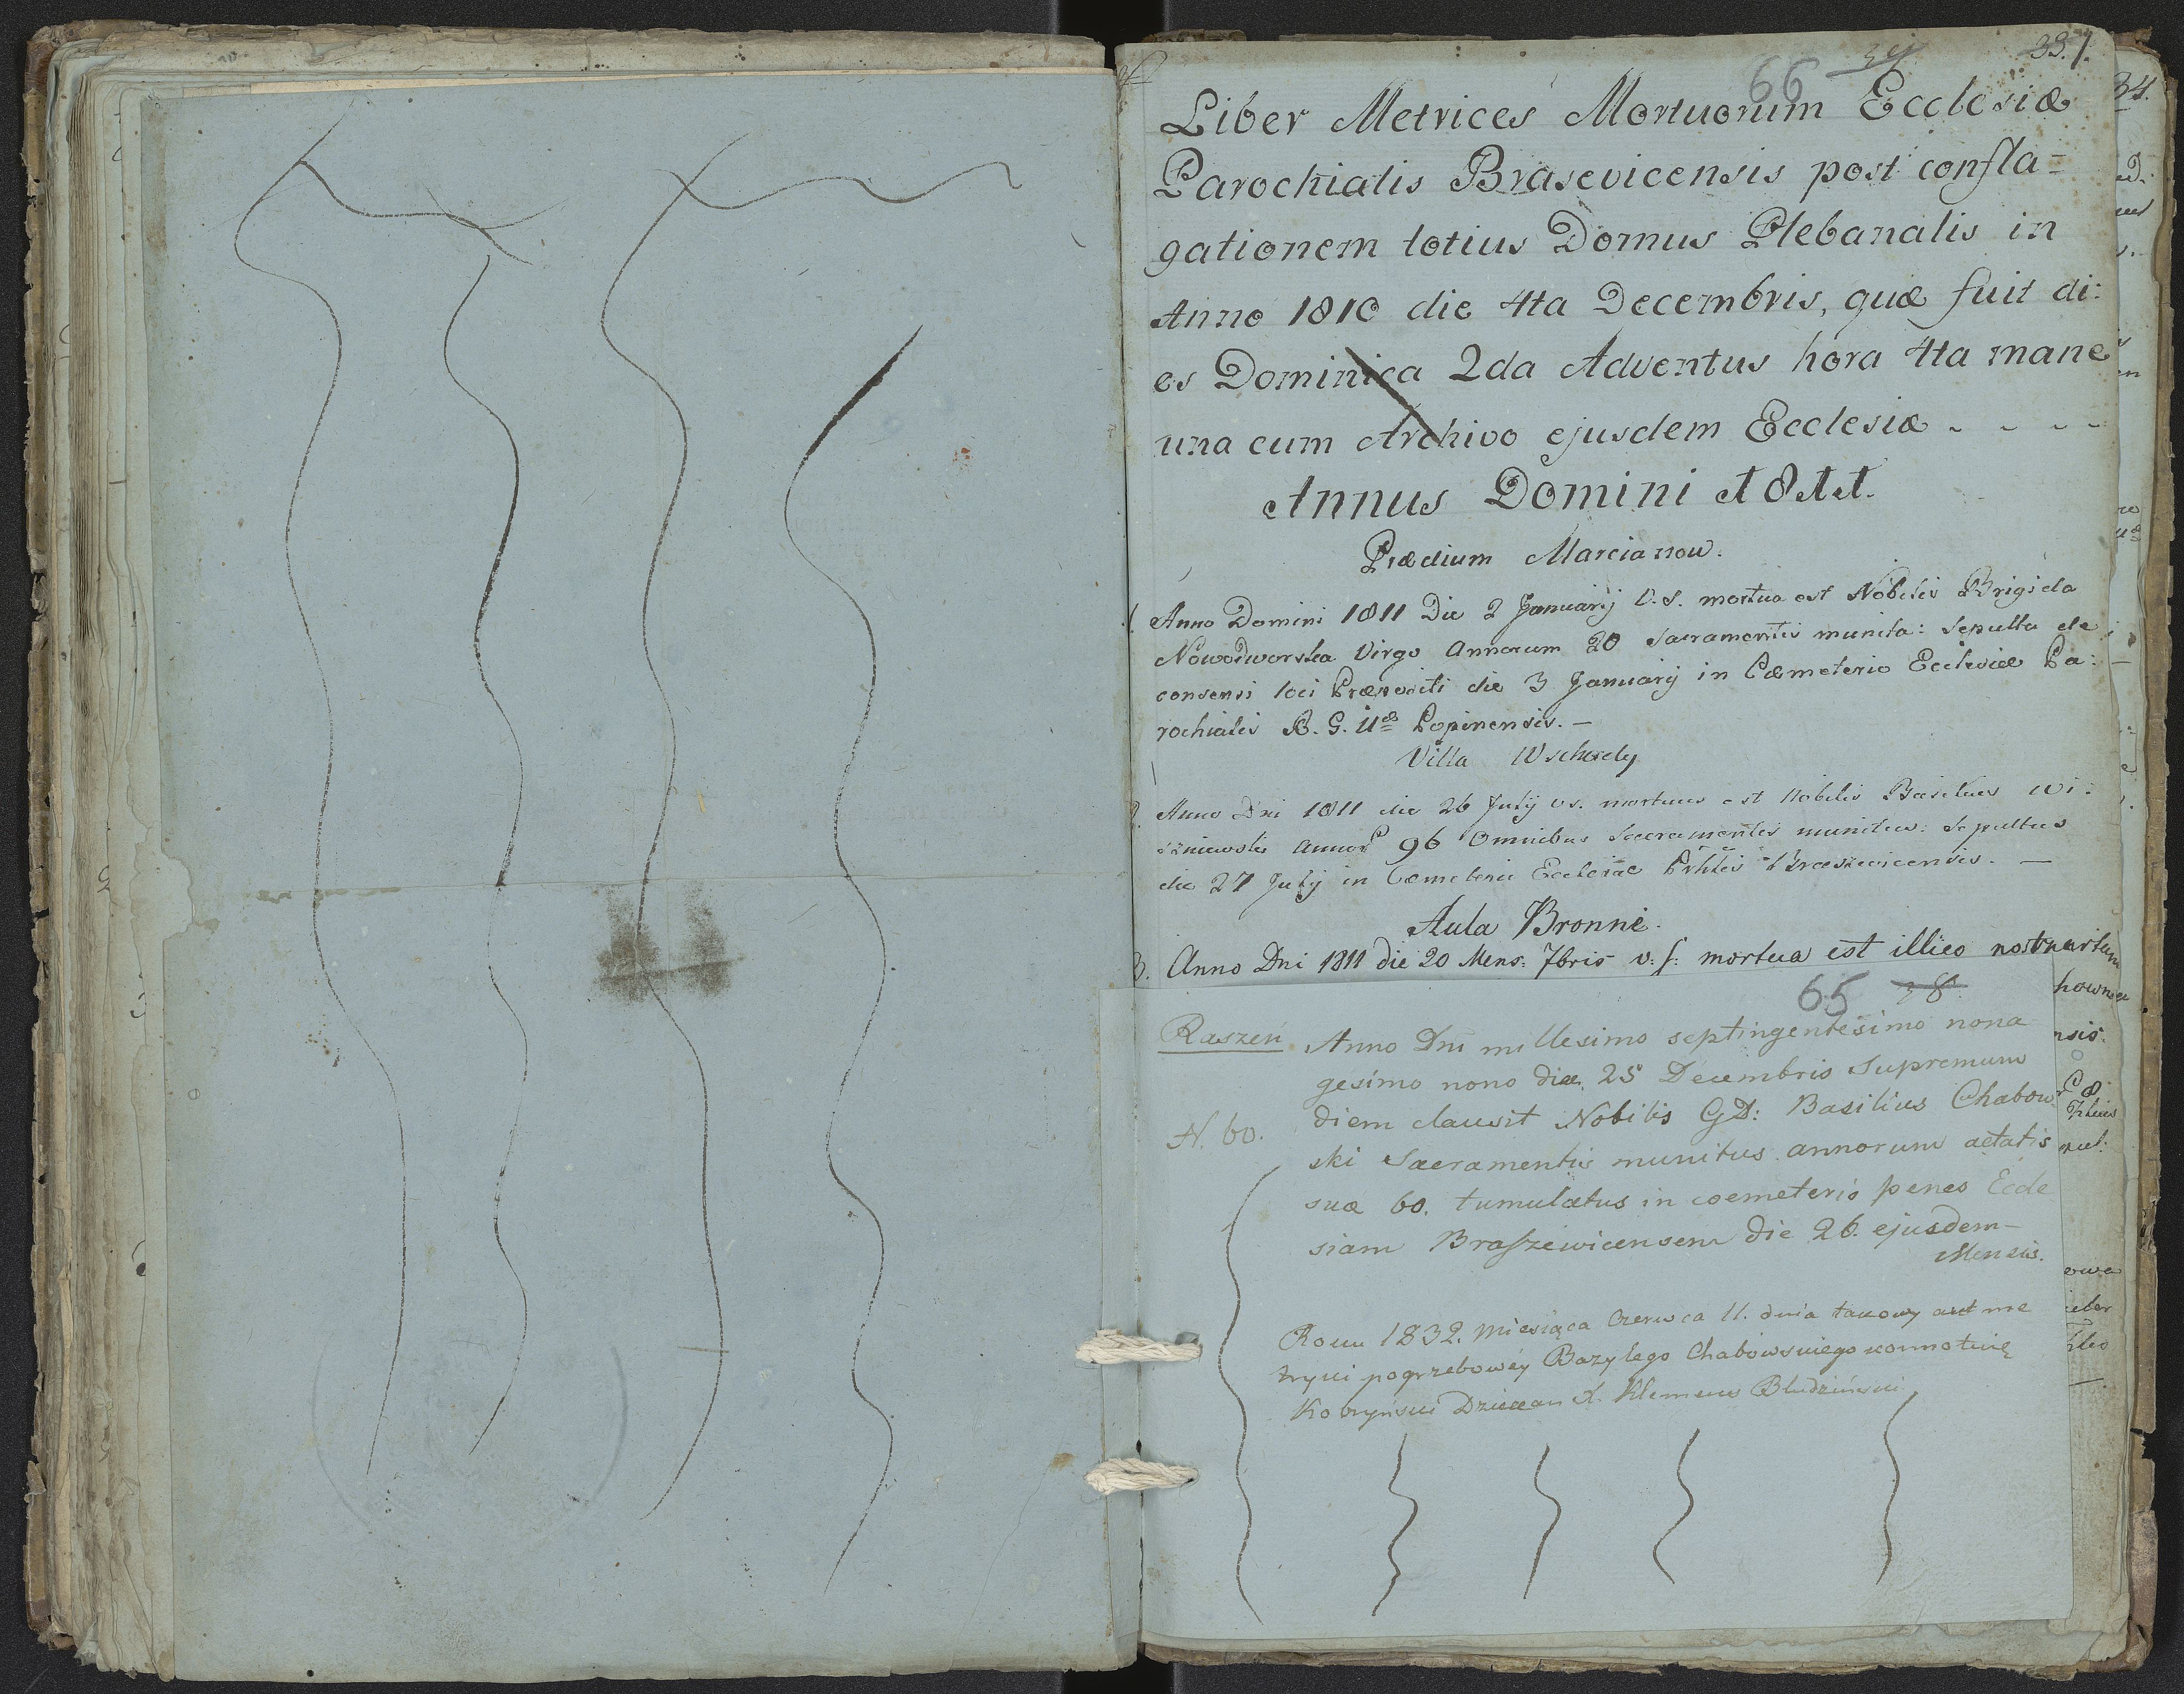 66 39 33. 1.
Liber Metrices Mortuorum Ecclesiæ
Parochialis Brasevicensis post confla=
gationem totius Domus Plebanalis in
Anno 1810 die 4ta Decembris, quæ fuit di:
es Dominica 2da Adventus hora 4ta mane
una cum Archivo ejusdem Ecclesiæ - - - -
Annus Domini 1811.
Prædium Marcianow.
1. Anno Domini 1811 Die 2 Januarij V.S. mortua est Nobilis Brigida
Nowodworska Virgo Annorum 20 Sacramentis munita: Sepulta de
consensu loci Præpositi die 3 Januarij in Cæmeterio Ecclesiæ Pa:
rochialis R. G. Popinensis. —
Villa Wscheely
2. Anno Dni 1811 die 26 Julij v.s. mortuus est Nobilis Basilius Wi:
szniewski 96 Omnibus Sacramentis munitus: Sepultus
die 27 Julij in Cæmeterio Ecclesiae Prhlis Braszewicensis. —
Aula Bronne.
3. Anno Dni 1811 die 20 Mens: 7bris v: s: mortua est illico post partum
65 38
Raszeń Anno Dni millesimo septingentesimo nona
gesimo nono die 25 Decembris Supremum
N. 60. diem clausit Nobilis GD: Basilius Chabow
ski Sacramentis munitus annorum aetatis
suæ 60. tumulatus in coemeterio penes Eccle
siam Braszewicensem die 26. ejusdem—
Mensis.
Roku 1832. Miesiąca Czerwca 11. dnia takowy akt me
tryki pogrzebowéy Bazylego Chabowskiego konnotuię
Kobryński Dziekan X. Klemens Bludziński
34.